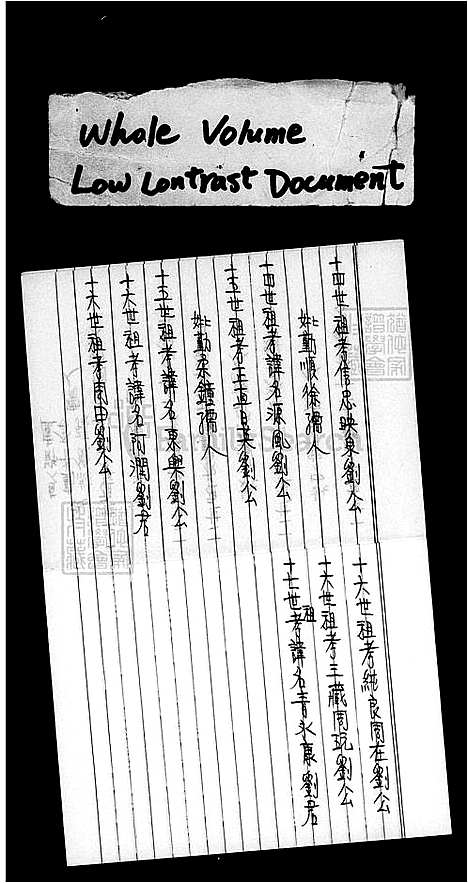 Whole Volume
Low Contrast Document
十四世祖考信忠映東劉公
妣勤順徐孺人
十四世祖考諱名源鳳劉公
十五世祖考正直日英劉公
妣勤柔鍾孺人
十五世祖考諱名東興劉公
十六世祖考諱名阿潤劉君
十六世祖考周由劉公
十六世祖考純良周在劉公
十六世祖考三藏周玩劉公
十七世祖考諱名青永康劉君